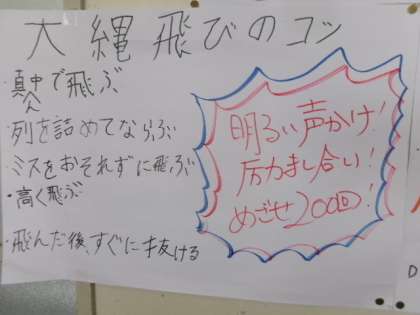 大縄飛びのコツ
・真中で飛ぶ
・列を詰めてならぶ
・ミスをおそれずに飛ぶ
・高く飛ぶ
・飛んだ後、すぐに抜ける
明るい声かけ!
励まし合い!
めざせ200回!
D